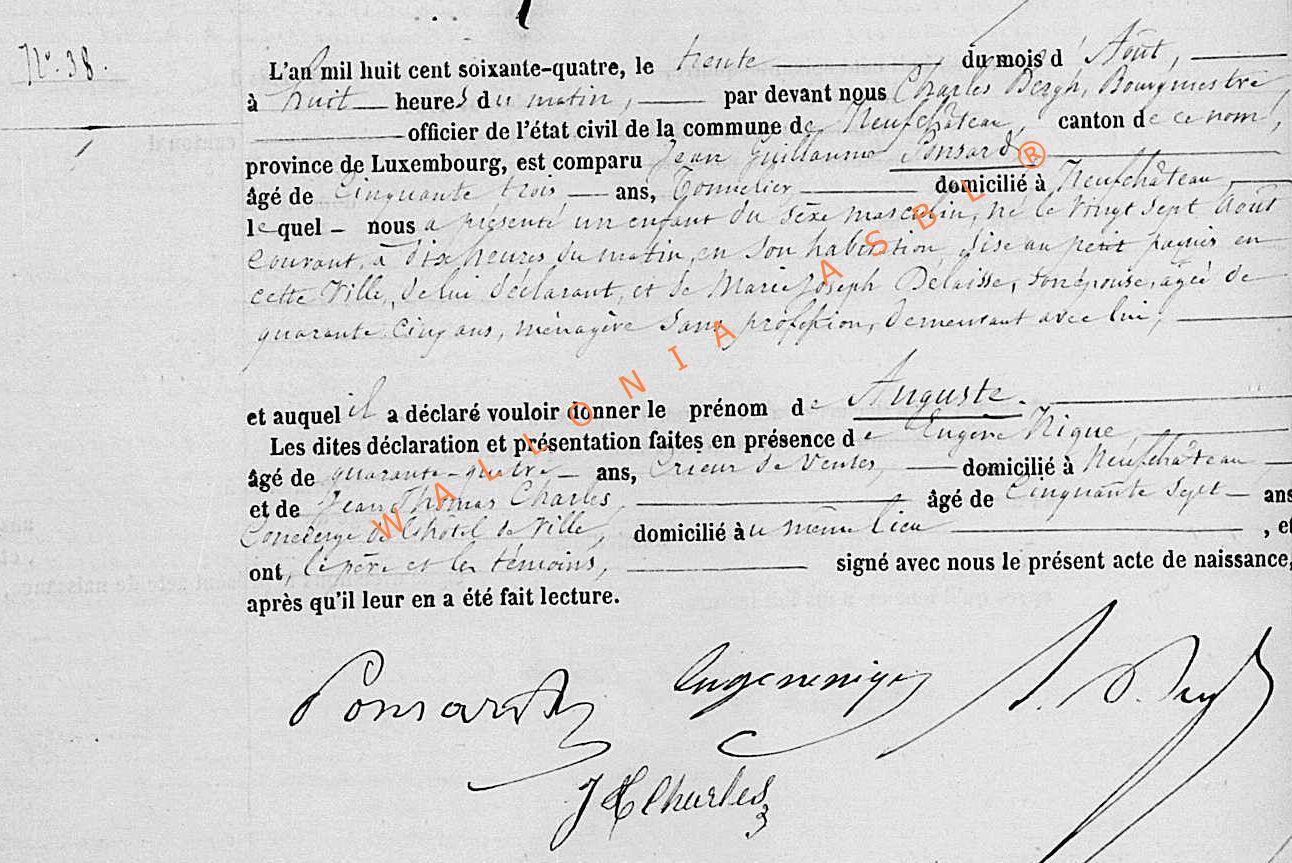 N° 38.
L'an mil huit cent soixante-quatre, le trente du mois d'Août,
à huit heures du matin, par devant nous Charles Bergh, Bourgmestre,
officier de l'état civil de la commune de Neufchâteau, canton de ce nom,
province de Luxembourg, est comparu Jean Guillaume Ponsard
âgé de Cinquante trois, ans, Tonnelier domicilié à Neufchâteau,
lequel – nous a présenté un enfant du sexe masculin, né le vingt sept Août
courant, à dix heures du matin, en son habitation, sise au petit en
cette Ville, de lui déclarant, et de Marie Joseph Delaisse, son épouse, âgée de
quarante cinq ans, ménagère sans profession, demeurant avec lui,
et auquel il a déclaré vouloir donner le prénom de Auguste.
Les dites déclaration et présentation faites en présence de Eugène Nique,
âgé de quarante-quatre ans, Crieur de Ventes, domicilié à Neufchâteau
et de Jean Thomas Charles, âgé de Cinquante sept ans
Concierge de l'hotel de Ville, domicilié au même lieu , et
ont, le père et les témoins, signé avec nous le présent acte de naissance,
après qu'il leur en a été fait lecture.
Ponsard
Eugene nique
J T Charles
WALLONIA ASBL ®